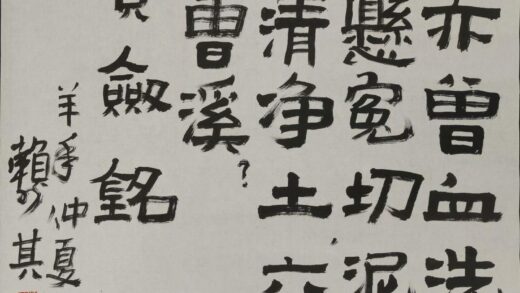 亦曾血洗
懸冤切泥
清净土六
曹溪?
劔銘
羊年仲夏
賴少其